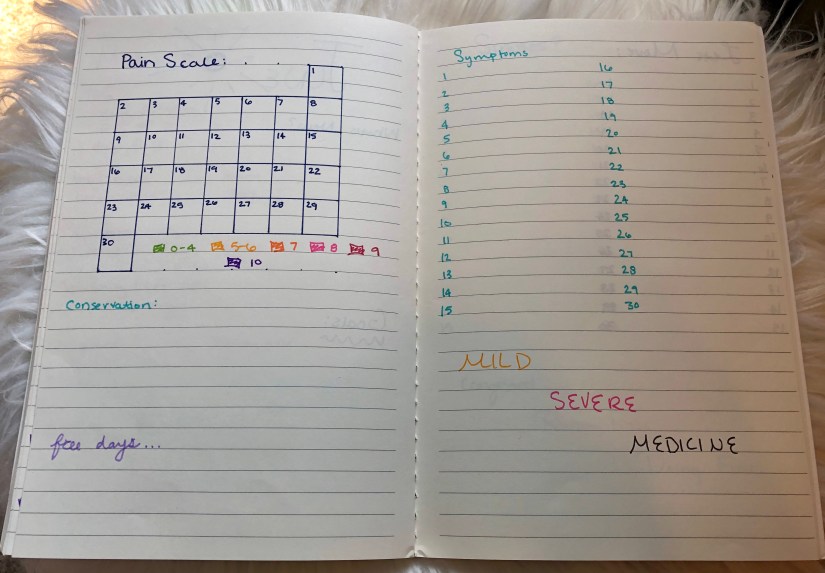 Pain Scale:
1
2 3 4 5 6 7 8
9 10 11 12 13 14 15
16 17 18 19 20 21 22
23 24 25 26 27 28 29
30
0-4 5-6 7 8 9
10
Conservation:
free days...
Symptoms
1 16
2 17
3 18
4 19
5 20
6 21
7 22
8 23
9 24
10 25
11 26
12 27
13 28
14 29
15 30
MILD
SEVERE
MEDICINE